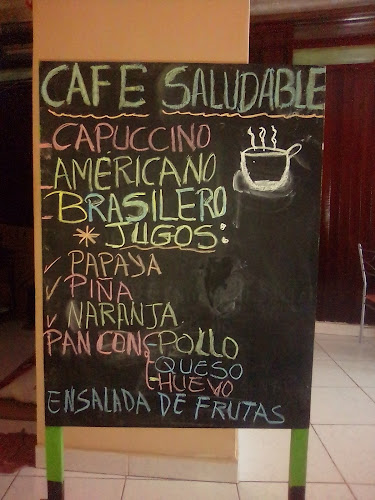 CAFE SALUDABLE
- CAPUCCINO
- AMERICANO
- BRASILERO
* JUGOS:
✓ PAPAYA
✓ PIÑA
✓ NARANJA
PAN CON - POLLO
- QUESO
- HUEVO
ENSALADA DE FRUTAS